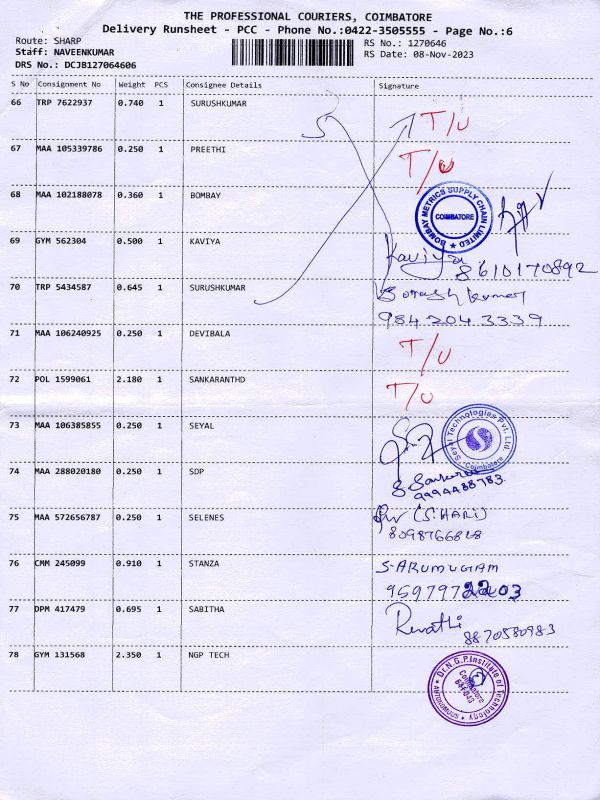 THE PROFESSIONAL COURIERS, COIMBATORE
Delivery Runsheet - PCC - Phone No.:0422-3505555 - Page No.:6
Route: SHARP RS No.: 1270646
Staff: NAVEENKUMAR RS Date: 08-Nov-2023
DRS No.: DCJB127064606
S No Consignment No Weight PCS Consignee Details Signature
66 TRP 7622937 0.740 1 SURUSHKUMAR T/U
67 MAA 105339786 0.250 1 PREETHI T/U
68 MAA 102188078 0.360 1 BOMBAY
BOMBAY METRICS SUPPLY CHAIN LIMITED
COIMBATORE
69 GYM 562304 0.500 1 KAVIYA Kaviya
8610170892
70 TRP 5434587 0.645 1 SURUSHKUMAR kumar
984 204 3339
71 MAA 106240925 0.250 1 DEVIBALA T/U
72 POL 1599061 2.180 1 SANKARANTHD T/U
73 MAA 106385855 0.250 1 SEYAL
Seyal Technologies Pvt. Ltd.
Coimbatore
74 MAA 288020180 0.250 1 SDP
9994488783
75 MAA 572656787 0.250 1 SELENES (S.HARI)
76 CMM 245099 0.910 1 STANZA S-ARUMUGAM
77 DPM 417479 0.695 1 SABITHA Revathi
8870580983
78 GYM 131568 2.350 1 NGP TECH
Dr. N.G.P. Institute of Technology
AUTONOMOUS
Coimbatore